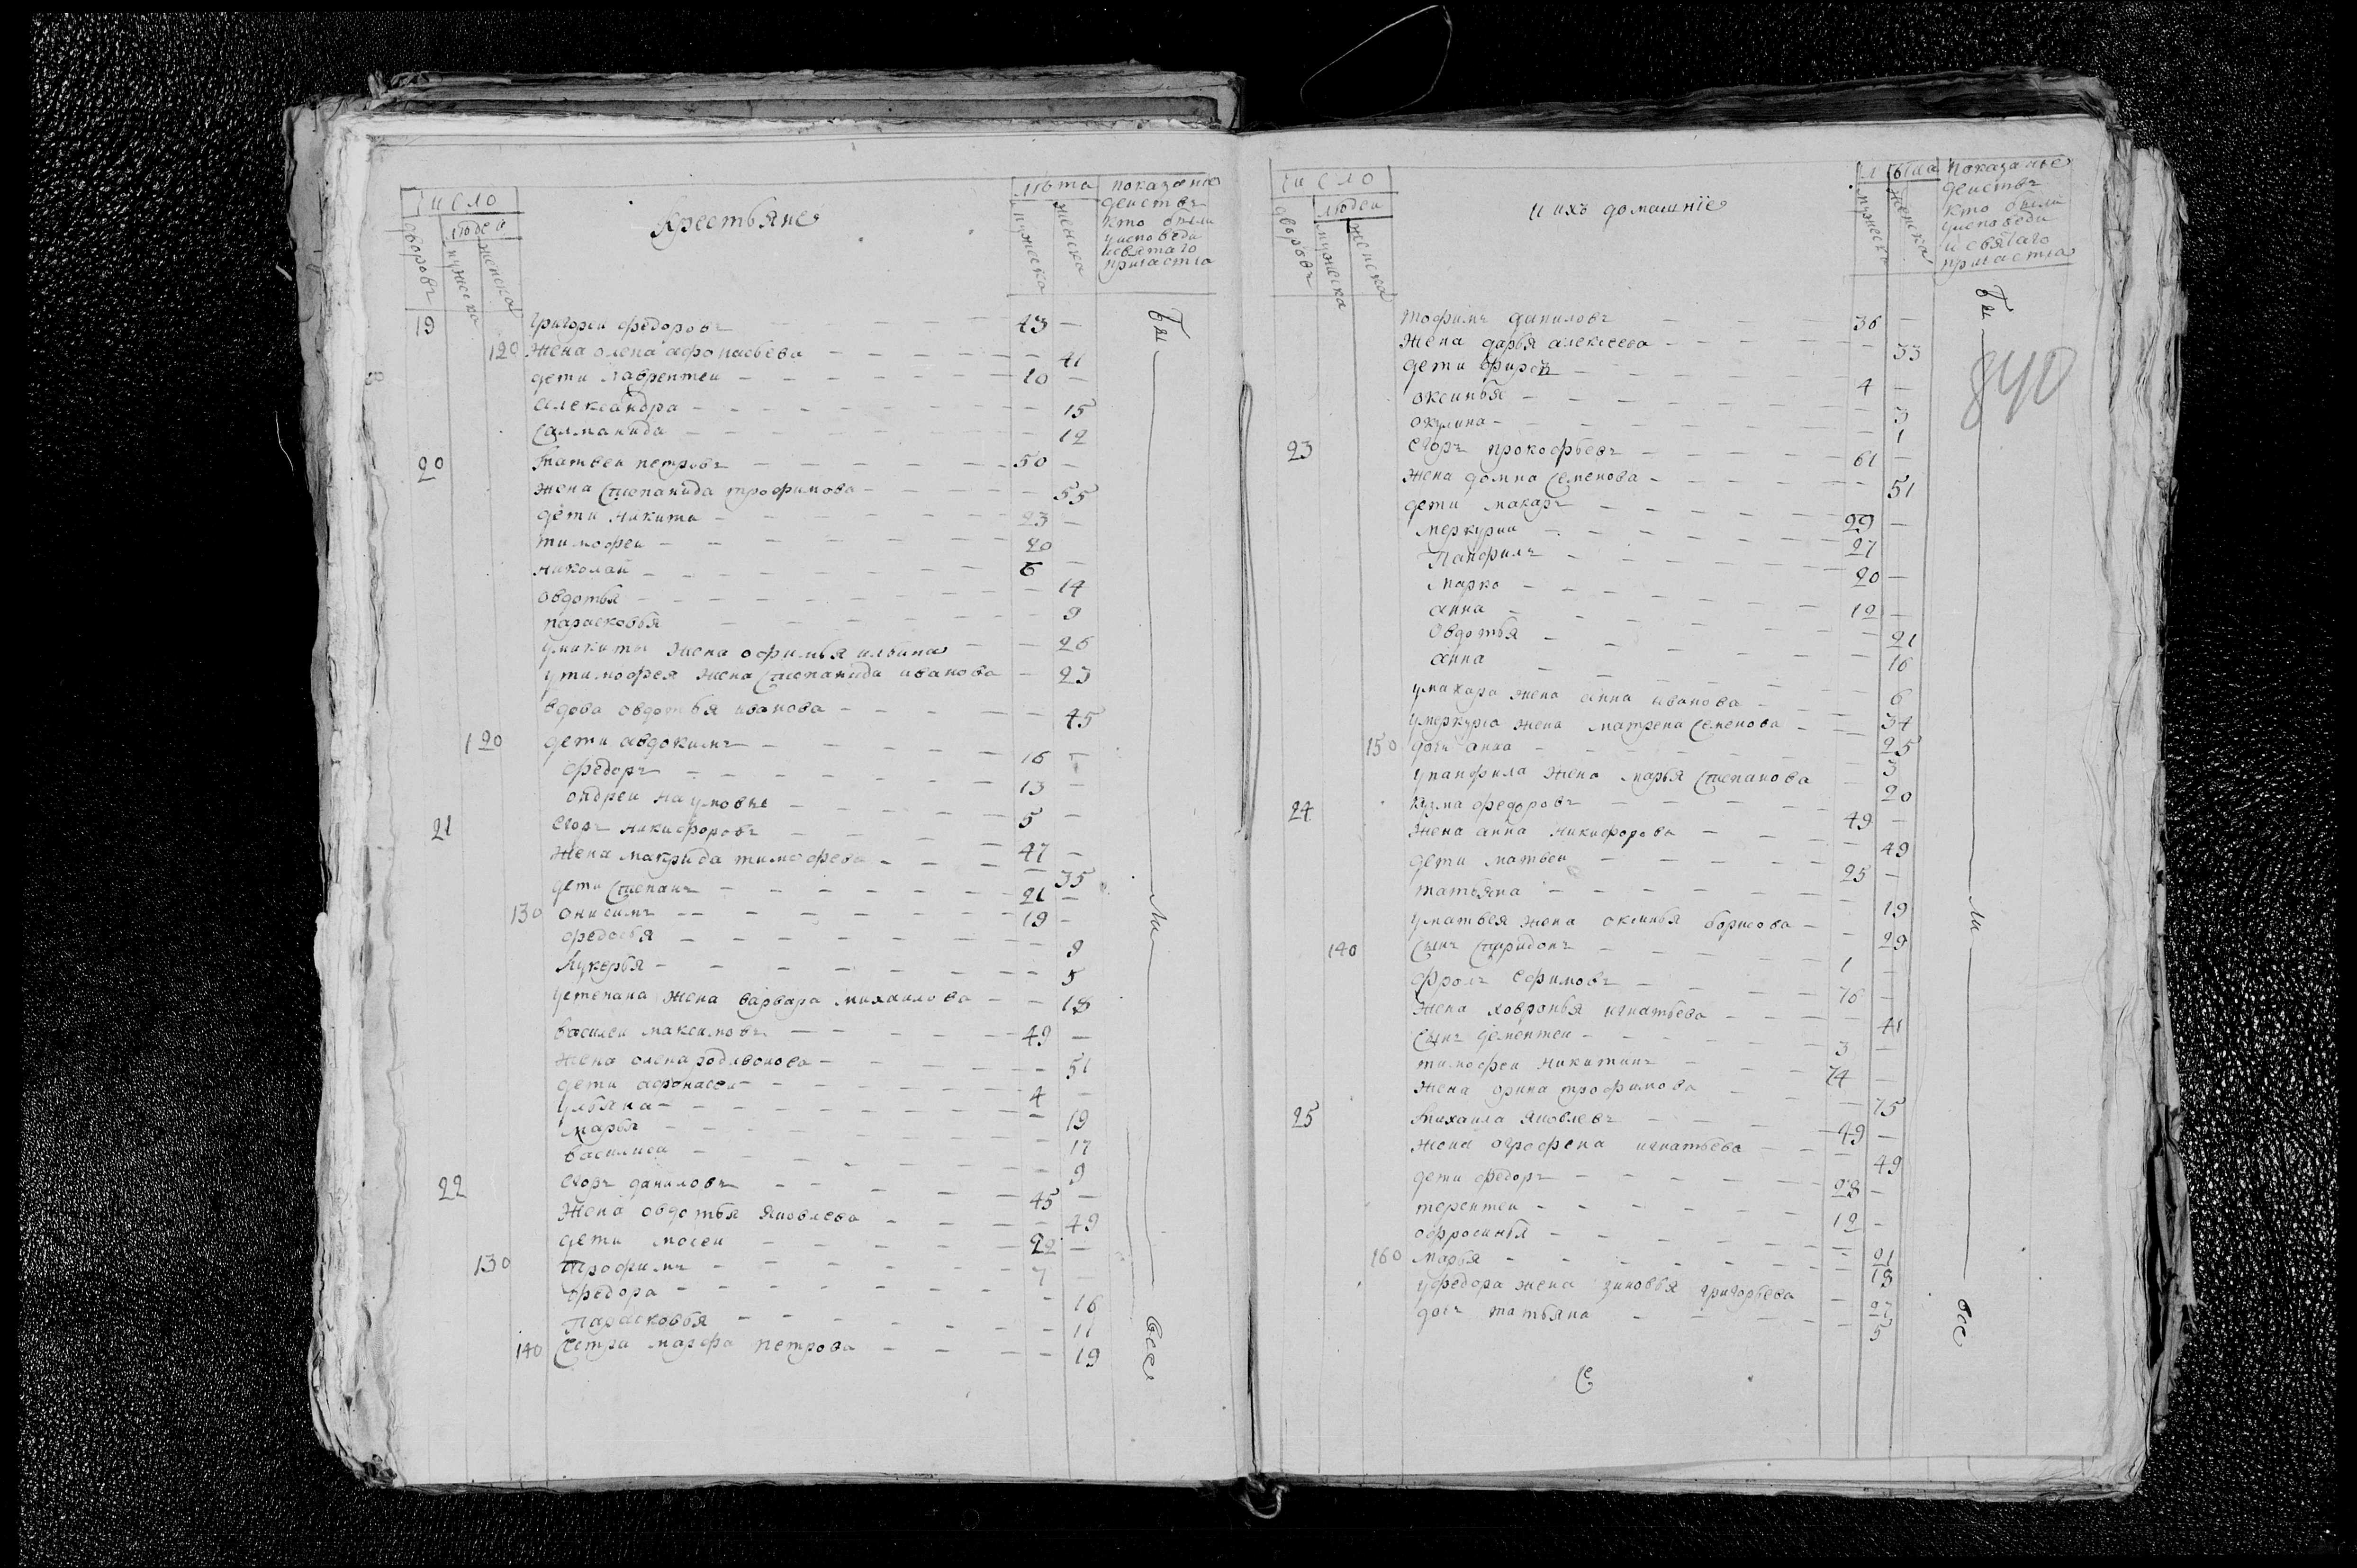 Число
людей
дворовъ
мужеска
женска
Крестьяне
лѣта
мужеска
женска
показание
действъ
кто были
уисповеди
исвятаго
причастиа
19 григореи федоровъ — 43 —
120 жена олена афонасьева — — 41
дети лаврентеи — 10 —
александра — — 15
Салманида — — 12
20 матвеи петровъ — 50 —
жена Степанида трофимова — — 55
дети никита — 23 —
тимофеи — 20 —
николаи — 6 —
овдотья — — 14
парасковья — — 9
уникиты жена офимья ильина — — 26
утимофея жена Степанида иванова — 23
вдова овдотья иванова — — 45
120 дети авдокимъ — 16 —
федоръ — 13 —
ондреи наумовы — 5 —
21 егоръ никифоровъ — 47 —
жена макрида тимофеева — — 35
дети Степанъ — 21 —
130 онисимъ — 19 —
федосья — — 9
лукерья — — 5
устепана жена варвара михаилова — — 18
василеи максимовъ — 49 —
жена олена родивонова — — 51
дети афонасеи — 4 —
ульяна — — 19
марья — — 17
василиса — — 9
22 егоръ даниловъ — 45 —
жена овдотья яковлева — — 49
дети мосеи — 22 —
130 трофимъ — 7 —
федора — — 16
парасковья — — 11
140 Сестра марфа петрова — — 19
бы
ли
все
Число
людеи
дворовъ
мужеска
женска
и ихъ домашнїе
лѣта
мужеска
женска
показание
действъ
кто были
уисповеди
исвятаго
причастиа
840
тофимъ даниловъ — 36 —
жена дарья алексеева — — 33
дети — 4 —
оксинья — — 3
окулина — — 1
23 егоръ прокофьевъ — 61 —
жена домна Семенова — — 51
дети макаръ — 29 —
меркуреи — 27
Панфилъ — 20 —
марко — 12 —
анна — — 21
овдотья — — 16
анна — — 6
умакара жена анна иванова — — 34
умеркурia жена матрена Семенова — — 25
150 дочь анна — — 3
упанфила жена марья Степанова — 20
24 кузма федоровъ — 49 —
жена анна никифорова — — 49
дети матвеи — 25 —
татьяна — — 19
уматвея жена оксинья борисова — — 29
140 Сынъ Спиридонъ — 1 —
фролъ ефимовъ — 76 —
жена ховронья игнатьева — — 41
Сынъ дементеи — 3 —
тимофеи никитинъ — 74 —
жена орина трофимова — — 75
25 михаила яковлевъ — 49 —
жена огрофена игнатьева — — 49
дети федоръ — 28 —
терентеи — 12 —
офросинья — — 21
160 марья — — 18
уфедора жена зиновья григорьева — 27
дочь татьяна — — 5
бы
ли
все